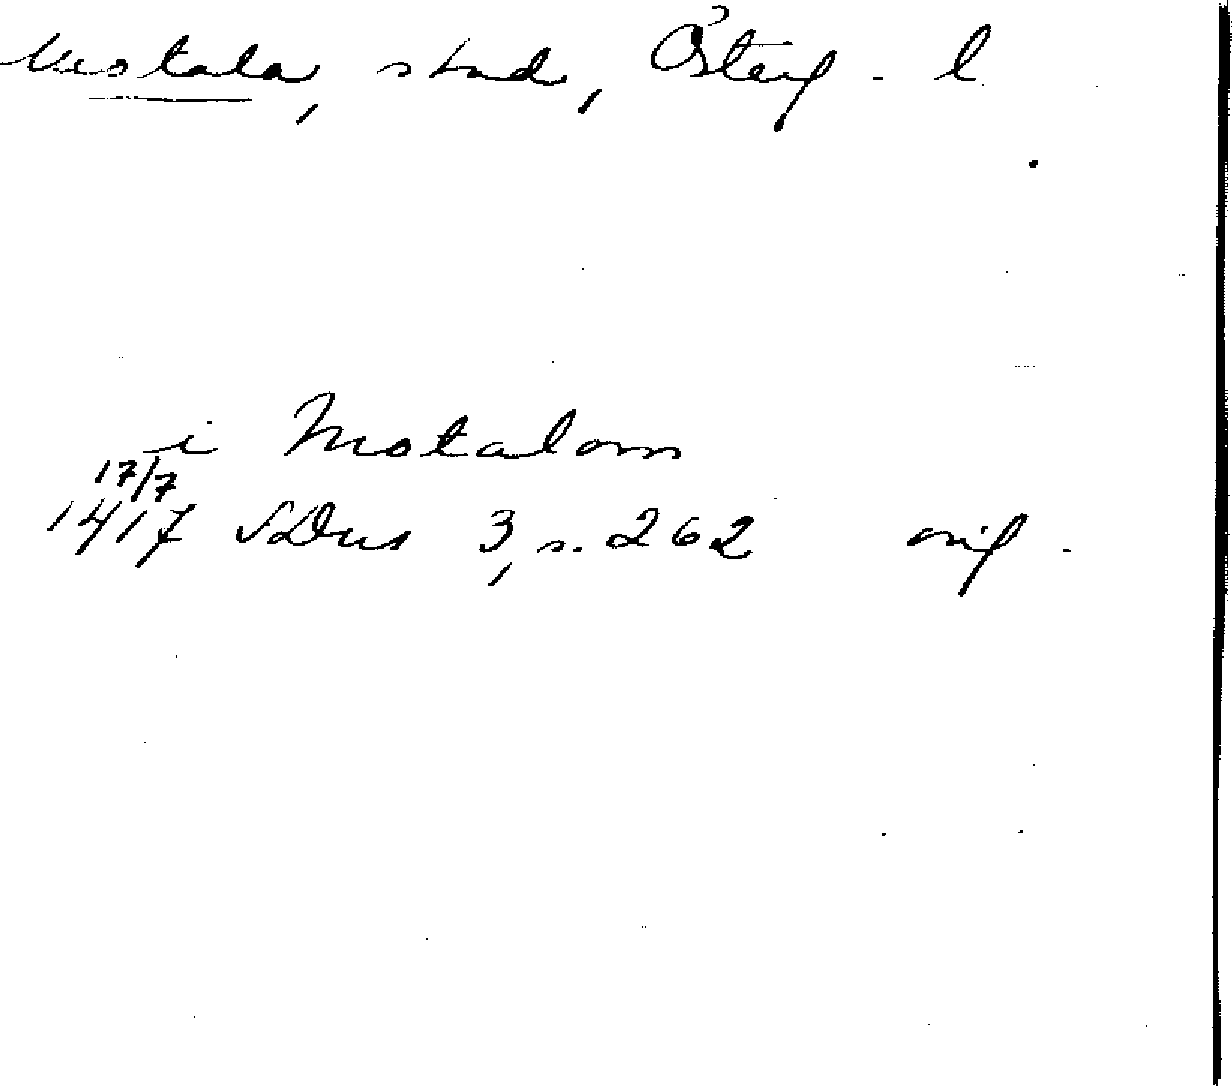 Motala, stad, Österg. l
i Motalom
17/7
1417 SDns 3, s. 262 orig.